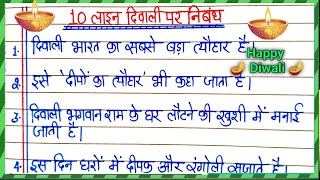 10 लाइन दिवाली पर निबंध
1. दिवाली भारत का सबसे बड़ा त्यौहार है।
Happy
Diwali
2. इसे 'दीपों का त्यौहार' भी कहा जाता है।
3. दिवाली भगवान राम के घर लौटने की खुशी में मनाई
जाती है।
4. इस दिन घरों में दीपक और रंगोली सजाते है।